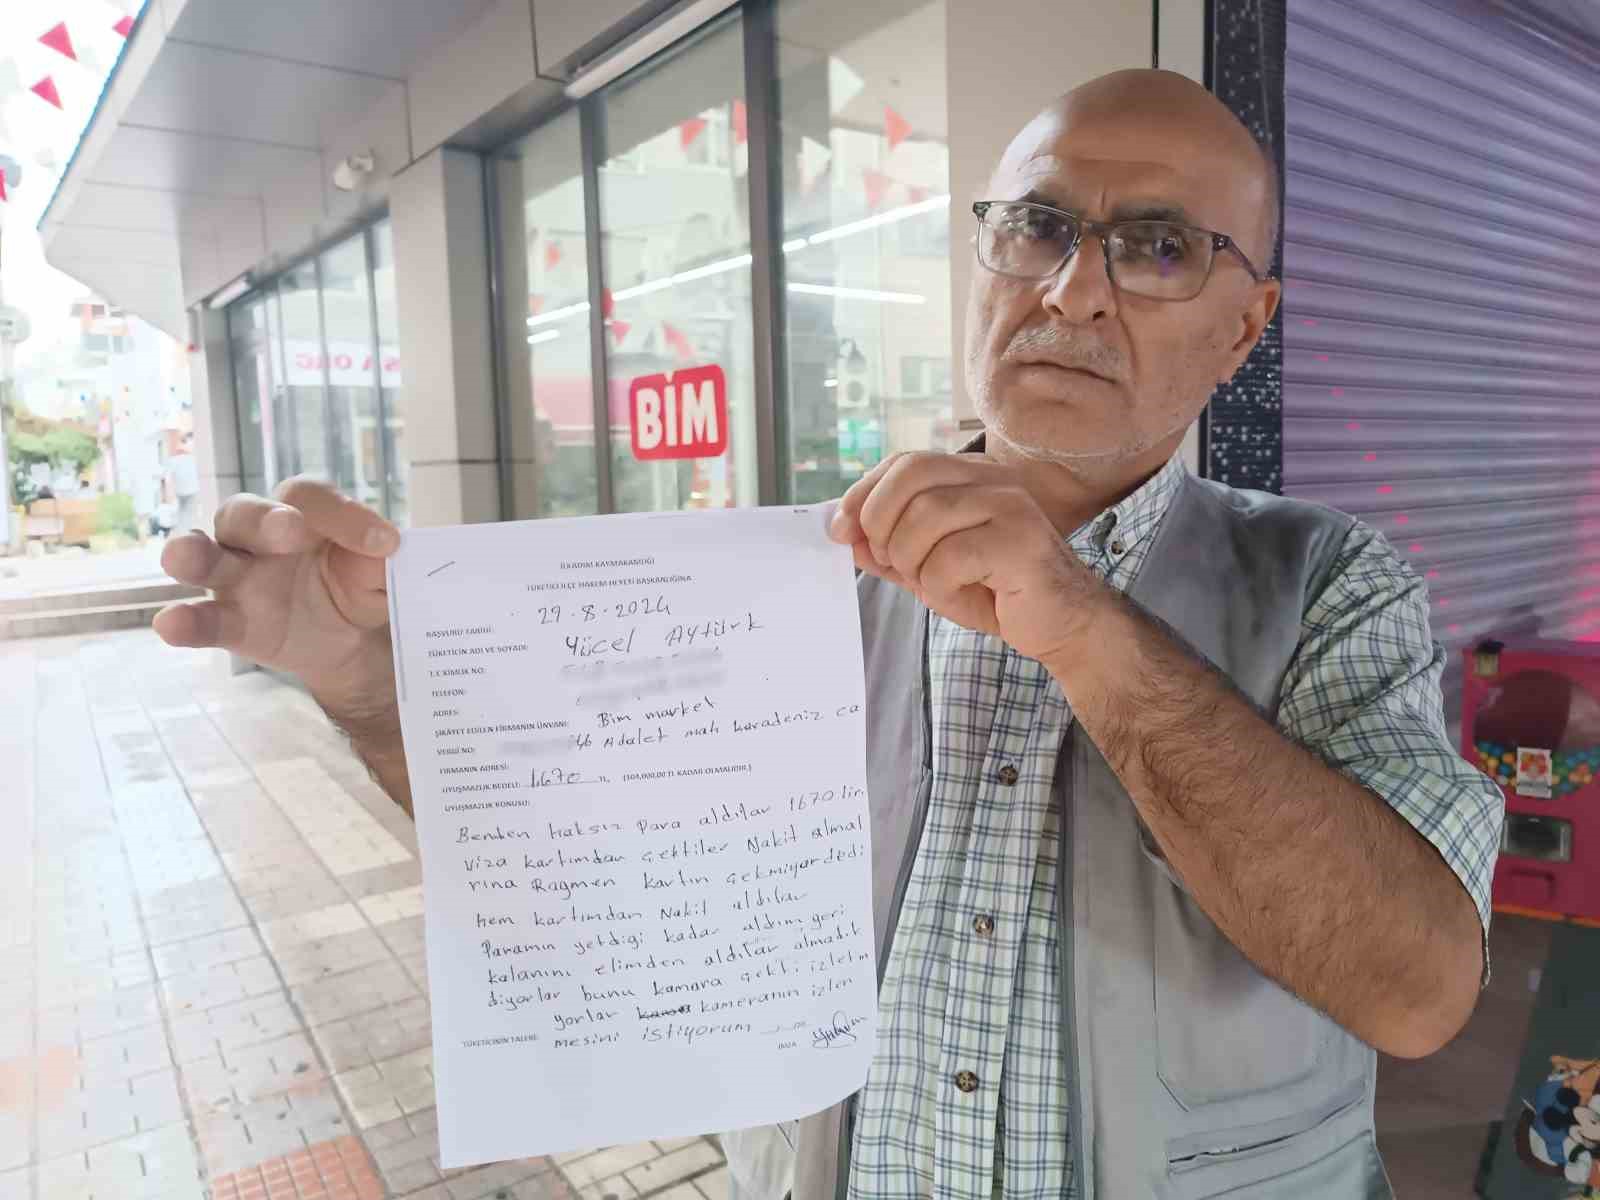 BİM
İLKADIM KAYMAKAMLIĞI
TÜKETİCİ İLÇE HAKEM HEYETİ BAŞKANLIĞINA
BAŞVURU TARİHİ: 29.8.2024
TÜKETİCİN ADI VE SOYADI: Yücel Aytürk
T.C KİMLİK NO:
TELEFON:
ADRES:
ŞİKAYET EDİLEN FİRMANIN ÜNVANI: Bim market
VERGİ NO:
FİRMANIN ADRESİ: Adalet mah karadeniz ca
UYUŞMAZLIK BEDELİ: 1670 TL (104.000,00 TL KADAR OLMALIDIR.)
UYUŞMAZLIK KONUSU:
Benden haksız Para aldılar 1670 lir
viza kartımdan çektiler Nakit almal
rına Ragmen kartın çekmiyor dedi
hem kartımdan Nakit aldılar
Paramın yetdiği kadar aldım geri
kalanını elimden aldılar almadık
diyorlar bunu kamara çekti izletm
yorlar kameranın izlen
TÜKETİCİNİN TALEBİ: mesini istiyorum
İMZA